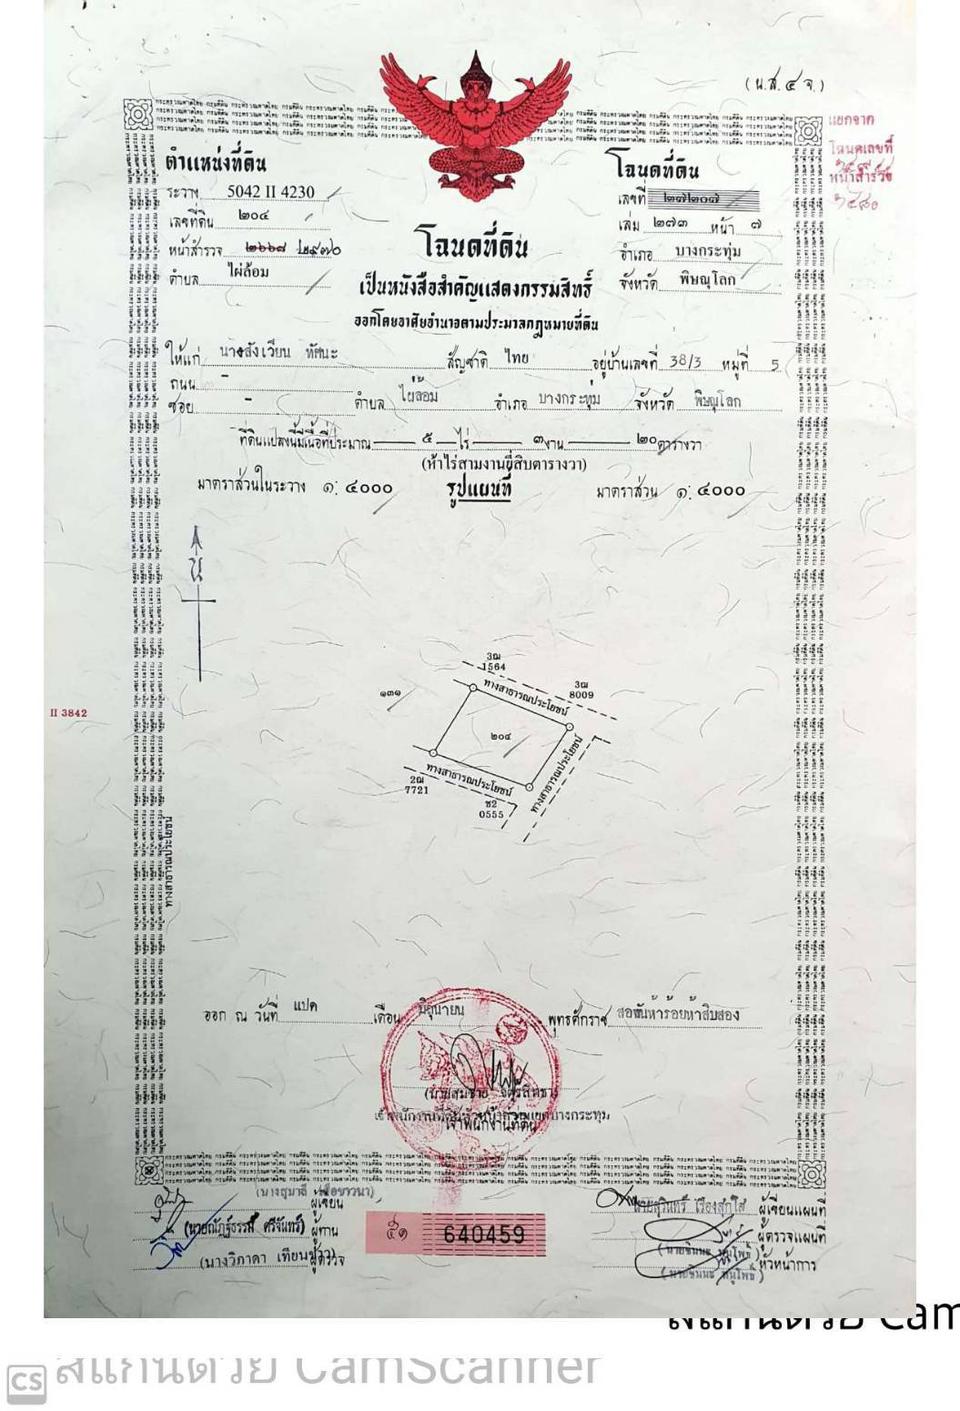 (น.ส.๔ จ.)
แยกจาก
โฉนดเลขที่
หน้าสำรวจ
ตำแหน่งที่ดิน
ระวาง 5042 II 4230
เลขที่ดิน ๒๐๔
หน้าสำรวจ ๒๖๖๘ ๒๙๗๐
ตำบล ไผ่ล้อม
โฉนดที่ดิน
เลขที่ ๒๗๒๐๗
เล่ม ๒๗๓ หน้า ๗
อำเภอ บางกระทุ่ม
จังหวัด พิษณุโลก
โฉนดที่ดิน
เป็นหนังสือสำคัญแสดงกรรมสิทธิ์
ออกโดยอาศัยอำนาจตามประมวลกฎหมายที่ดิน
ให้แก่ นางสังเวียน ทัศนะ สัญชาติ ไทย อยู่บ้านเลขที่ 38/3 หมู่ที่ 5
ถนน -
ซอย - ตำบล ไผ่ล้อม อำเภอ บางกระทุ่ม จังหวัด พิษณุโลก
ที่ดินแปลงนี้มีเนื้อที่ประมาณ ๕ ไร่ ๓ งาน ๒๐ ตารางวา
(ห้าไร่สามงานยี่สิบตารางวา)
มาตราส่วนในระวาง ๑:๔๐๐๐ รูปแผนที่ มาตราส่วน ๑:๔๐๐๐
น
3ฌ
1564
3ฌ
8009
๑๓๑
ทางสาธารณประโยชน์
๒๐๔
ทางสาธารณประโยชน์
ทางสาธารณประโยชน์
2ฌ
7721
ซ2
0555
II 3842
ทางสาธารณประโยชน์
ออก ณ วันที่ แปด เดือน มิถุนายน พุทธศักราช สองพันห้าร้อยห้าสิบสอง
เจ้าพนักงานที่ดิน
(นางสุมาลี
ผู้เขียน
ศรีจันทร์) ผู้ทาน
(นางวิภาดา ผู้ตรวจ
๕๑ 640459
นายสุรินทรี เรืองสุกใส ผู้เขียนแผนที่
ผู้ตรวจแผนที่
หัวหน้าการ
สแกนด้วย Cam
CS สแกนด้วย CamScanner